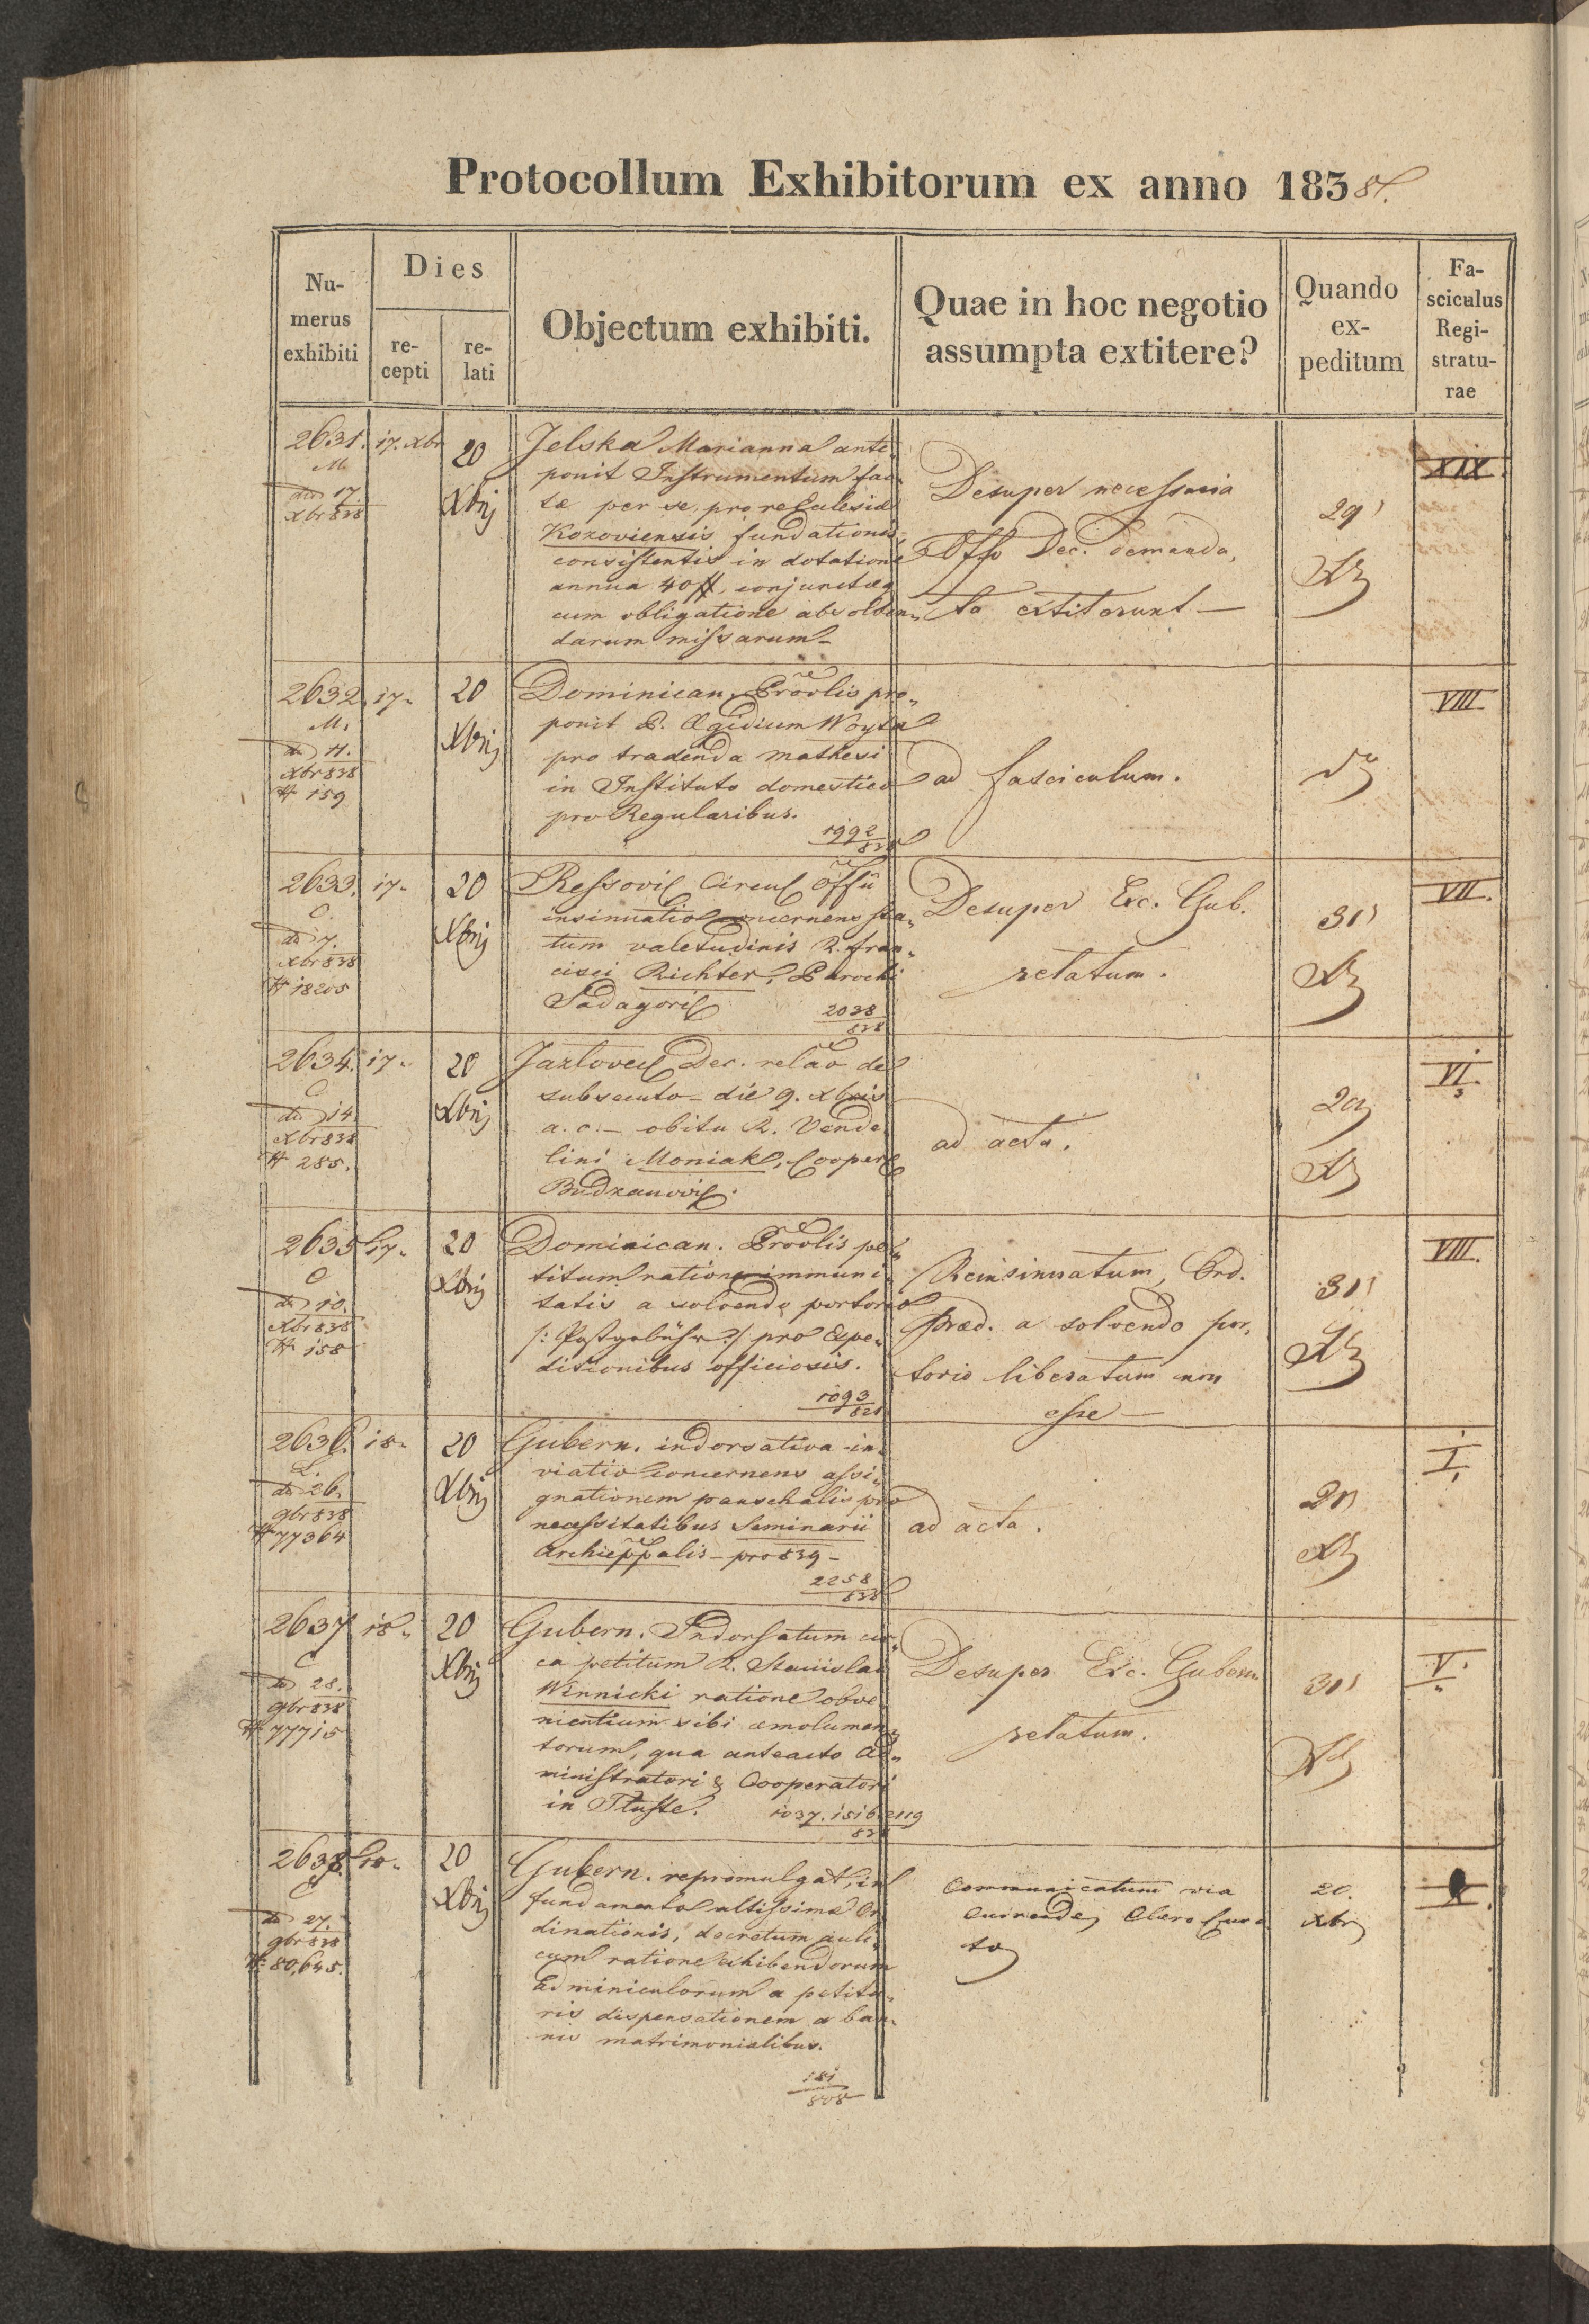 Protocollum Exhibitorum ex anno 1838.
Nu-
merus
exhibiti
Dies
re-
cepti
re-
lati
Objectum exhibiti.
Quae in hoc negotio
assumpta extitere?
Quando
ex-
peditum
Fa-
sciculus
Regi-
stratu-
rae
2631. 17. Xbr 20
M.
17.
Xbr 838
Xbris
Jelska Marianna ante-
ponit Instrumentum fac-
tae per se pro re Eclesiae
Kozoviensis fundationis
consistentis in dotatione
annua 40 ff, conjunctaeq
cum obligatione absolven-
darum missarum
Desuper necessaria
Offo Dec. demanda,
ta extiterunt
29
XIX.
2632. 17. 20
M.
11.
Xbr 838
# 159
Xbris
Dominican. Provlis pro-
ponit P. Aegidium Woyta
pro tradenda mathesi
in Instituto domestico
pro Regularibus.
1992
838
ad fasciculum.
VIII
2633. 17. 20
C
7.
Xbr 838
# 18205
Xbris
Ressovis Circul Offii
insinuatio concernens sta-
tum valetudinis R. Fran-
cisci Richter, Parochi
Sadagoris
2038
838
Desuper Exc. Gub.
relatum.
31
VII.
2634. 17. 20
C
14.
Xbr 838
# 285.
Xbris
Jazlovec Dec. relao de
subsecuto die 9. Xbris
a. c. obitu R. Vende-
lini Moniak, Cooper
Budzanovis.
ad acta.
VI.
2635 17. 20
C
10.
Xbr 838
# 158
Xbris
Dominican. Provlis pe-
titum ratione immuni-
tatis a solvendo portorio
/: Postgebühr :/ pro Expe-
ditionibus officiosis.
1093
828
Reinsinuatum, Ord.
Praed. a solvendo por,
torio liberatum non
esse
31
VIII.
2636. 18. 20
L.
26.
9br 838
# 77364
Xbris
Gubern. indorsativa in-
viatio concernens assi-
gnationem pauschalis pro
necessitatibus Seminarii
Archieppalis pro 839
2258
838
ad acta.
I.
2637 18. 20
C
28.
9br 838
# 77715
Xbris
Gubern. Indorsatum cir-
ca petitum R. Stanislai
Winnicki ratione obve-
nientium sibi emolumen-
torum, qua anteacto Ad-
ministratori & Cooperatori
in Tluste. 1037. 1516. 2119
838
Desuper Exc. Gubern
relatum.
31
V.
2638. 18. 20
C
27.
9br 838
# 80,645.
Xbris
Gubern. repromulgat, in
fundamento altissimae Or-
dinationis, decretum auli-
cum ratione exhibendorum
Adminiculorum a petitu-
ris dispensationem a ban-
nis matrimonialibus.
181
808
Communicatum via
Currendae Clero Cura
to
20.
Xbr